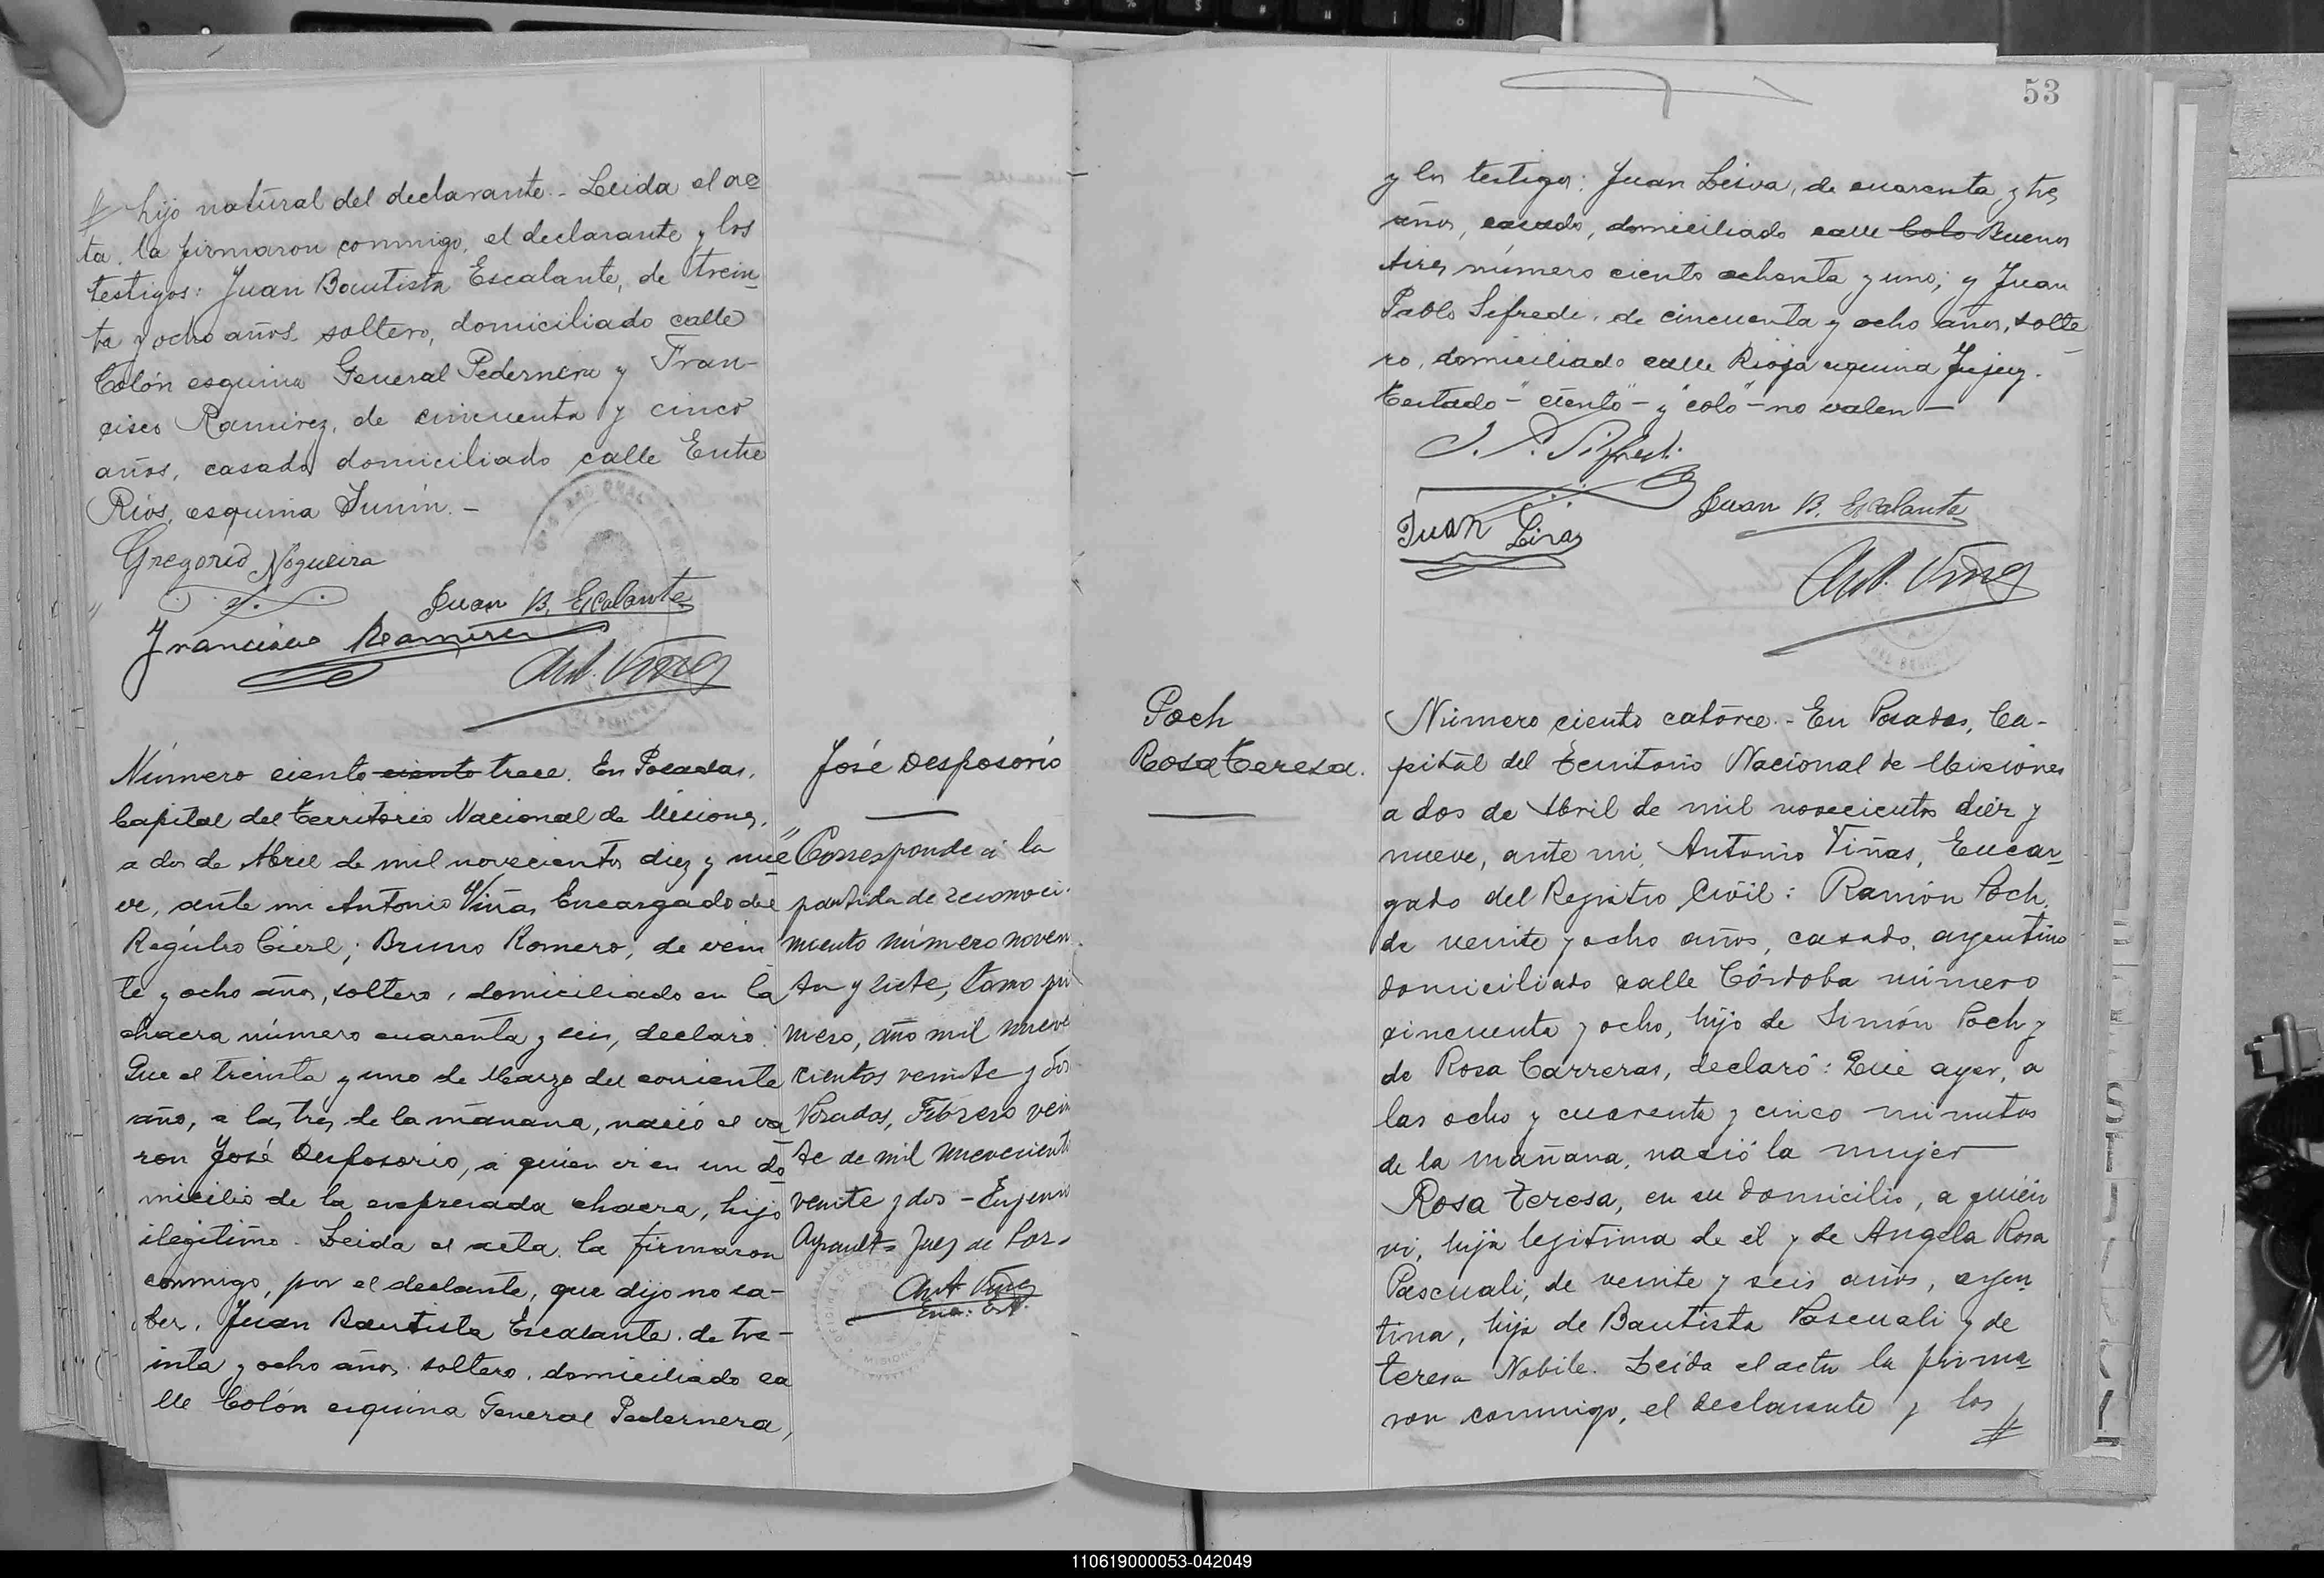 hijo natural del declarante.- Leida el ac
ta, la firmaron conmigo, el declarante y los
testigos: Juan Bautista Escalante, de trein
ta y ocho años, soltero, domiciliado calle
Colón esquina General Pedernera y Fran-
cisco Ramirez, de cincuenta y cinco
años, casado domiciliado calle Entre
Rios, esquina Junin.-
Gregorio Nogueira
Juan B. Escalante
Francisco Ramirez
Ant. Viñas
Número ciento ciento trece. En Posadas,
Capital del Territorio Nacional de Misiones,
a dos de Abril de mil novecientos diez y nue
ve, ante mi Antonio Viñas Encargado del
Registro Civil; Bruno Romero, de vein
te y ocho años, soltero, domiciliado en la
chacra número cuarenta y seis, declaró:
Que el treinta y uno de Marzo del corriente
año, a las tres de la mañana, nació el va
ron José Desposorio, a quien vi en un do
micilio de la expresada chacra, hijo
ilegitimo. Leida el acta, la firmaron
conmigo, por el declante, que dijo no sa-
ber, Juan Bautista Escalante, de tre-
inta y ocho años, soltero, domiciliado ca
lle Colón esquina General Pedernera,
José Desposorio
Corresponde á la
partida de reconoci-
miento número noven
ta y siete, tomo pri
mero, año mil nueve
cientos veinte y dos
Posadas, Febrero vein
te de mil nuevecientos
veinte y dos - Eugenio
Juez de
Ant Viñas
53
y los testigos: Juan Leiva, de cuarenta y tres
años, casado, domiciliado calle Colo Buenos
Aires número ciento ochenta y uno; y Juan
Pablo Sifredi, de cincuenta y ocho años, solte
ro, domiciliado calle Rioja esquina Jujuy.
Testado - "ciento" - y "colo" - no valen -
J. P. Sifredi
Juan B. Escalante
Juan
Ant. Viñas
Poch
Rosa Teresa.
Número ciento catorce.- En Posadas, Ca-
pital del Territorio Nacional de Misiones
a dos de Abril de mil novecientos diez y
nueve, ante mi, Antonio Viñas, Encar-
gado del Registro Civil: Ramón Poch,
de veinte y ocho años, casado, argentino
domiciliado calle Córdoba número
cincuenta y ocho, hijo de Simón Poch y
de Rosa Carreras, declaró: Que ayer, a
las ocho y cuarenta y cinco minutos
de la mañana, nació la mujer
Rosa Teresa, en su domicilio, a quién
vi, hija legitima de él y de Angela Rosa
Pascuali, de veinte y seis años, argen
tina, hija de Bautista Pascuali y de
Teresa Nobile. Leida el acta la firma
ron conmigo, el declarante y los
110619000053-042049